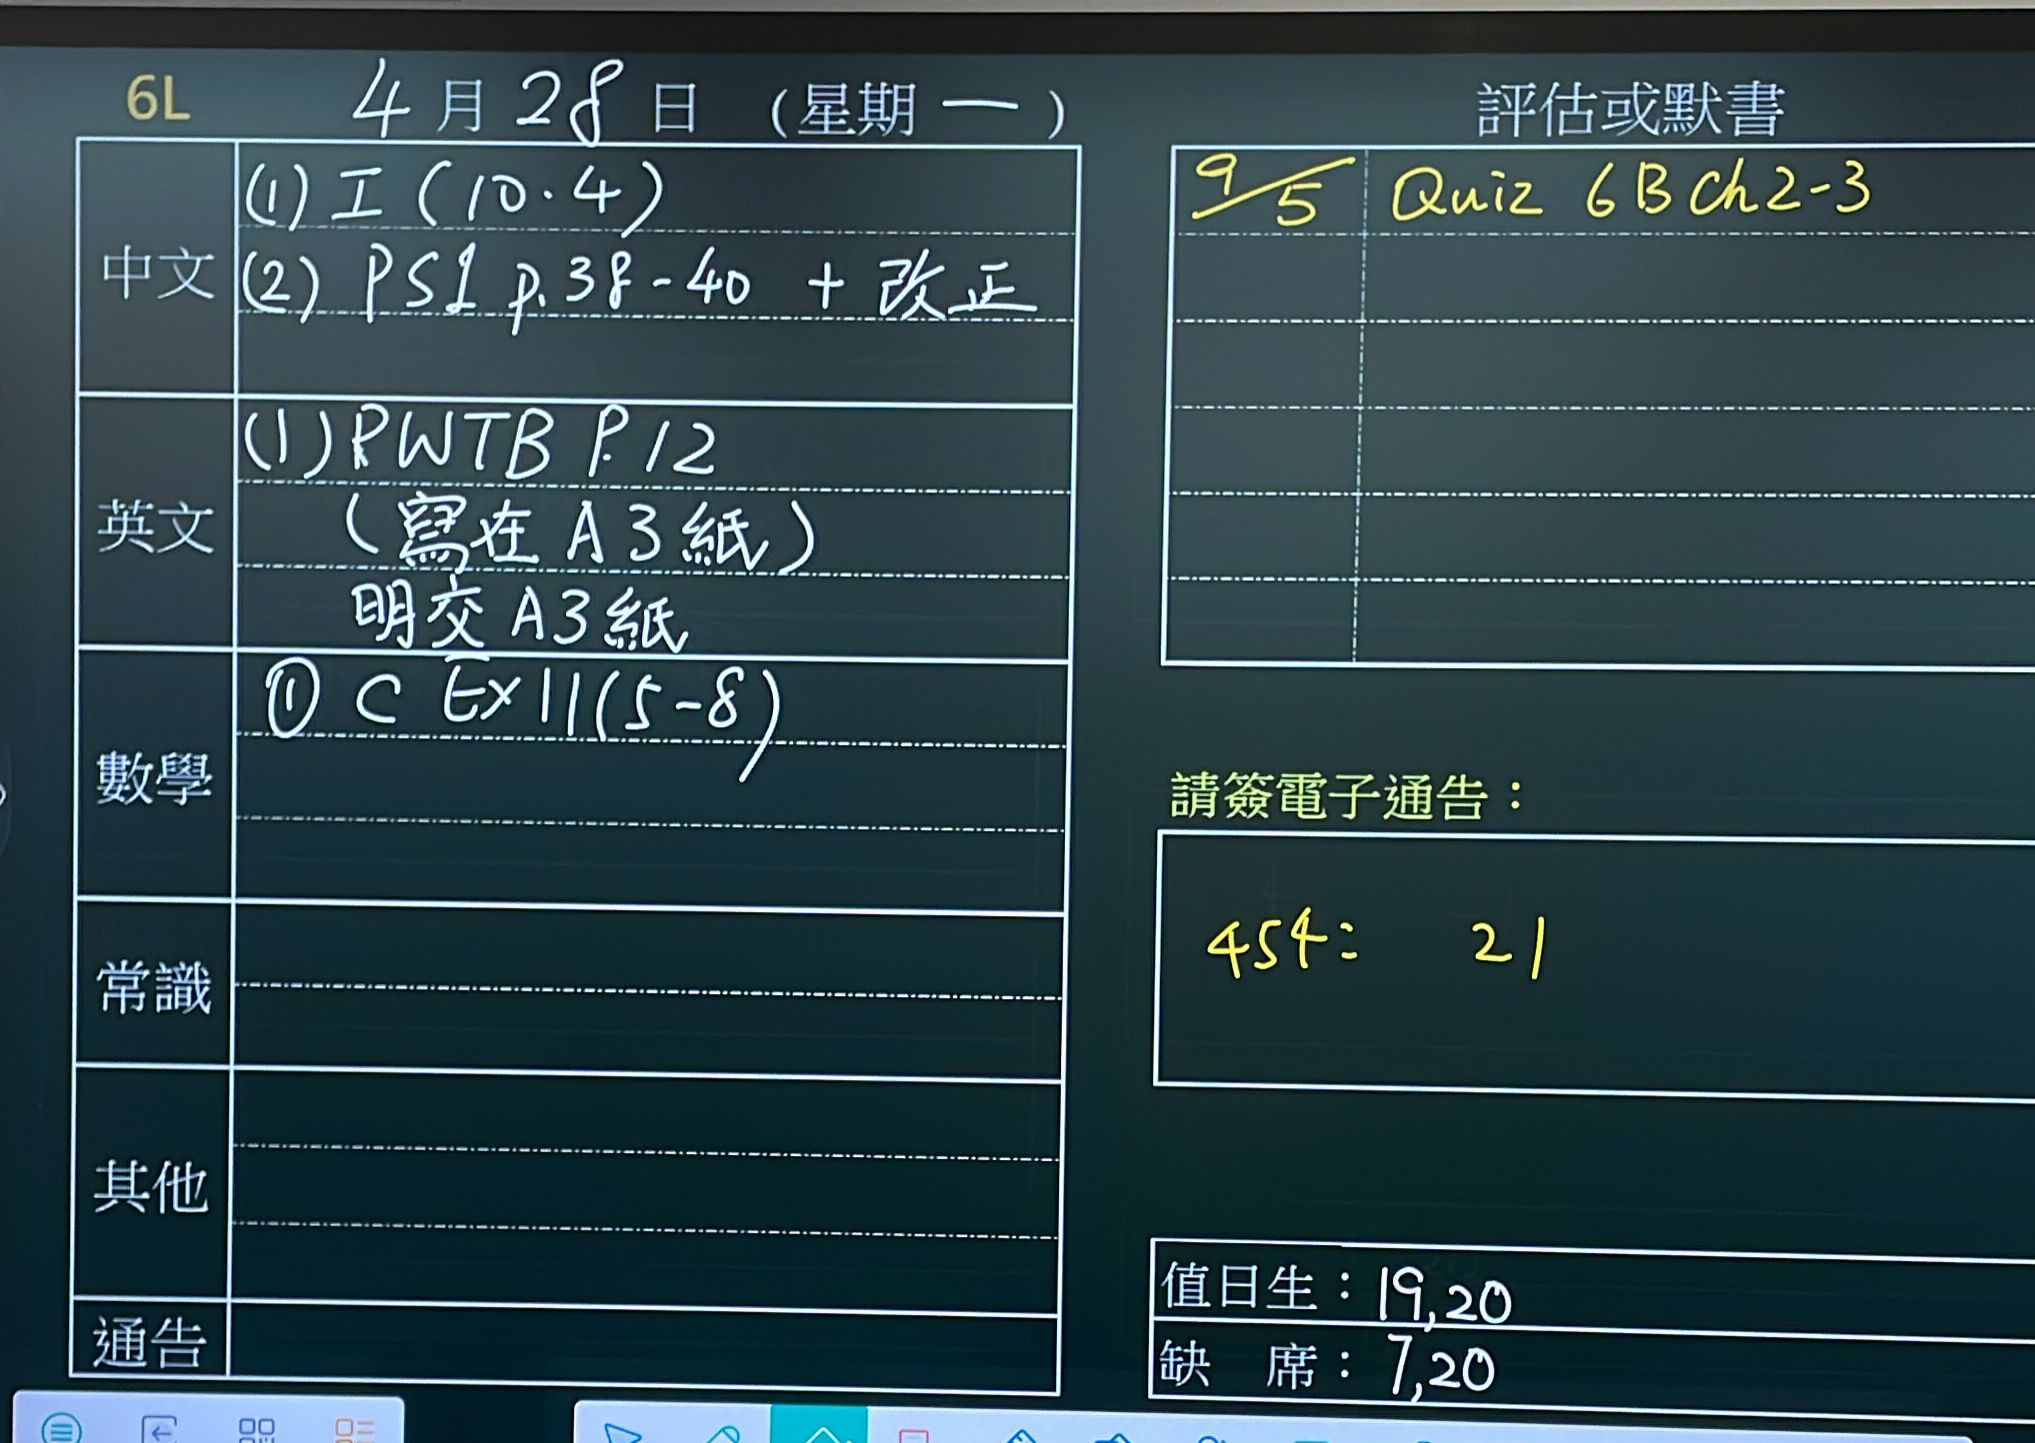 6L 4月28日 (星期一)
中文
(1) 工 (10.4)
(2) PS1 p.38-40 + 改正
英文
(1) RWTB P.12
(寫在A3紙)
明交A3紙
數學
① C Ex 11 (5-8)
常識
其他
通告
評估或默書
9/5 Quiz 6B Ch2-3
請簽電子通告：
454: 21
值日生：19,20
缺 席：7,20